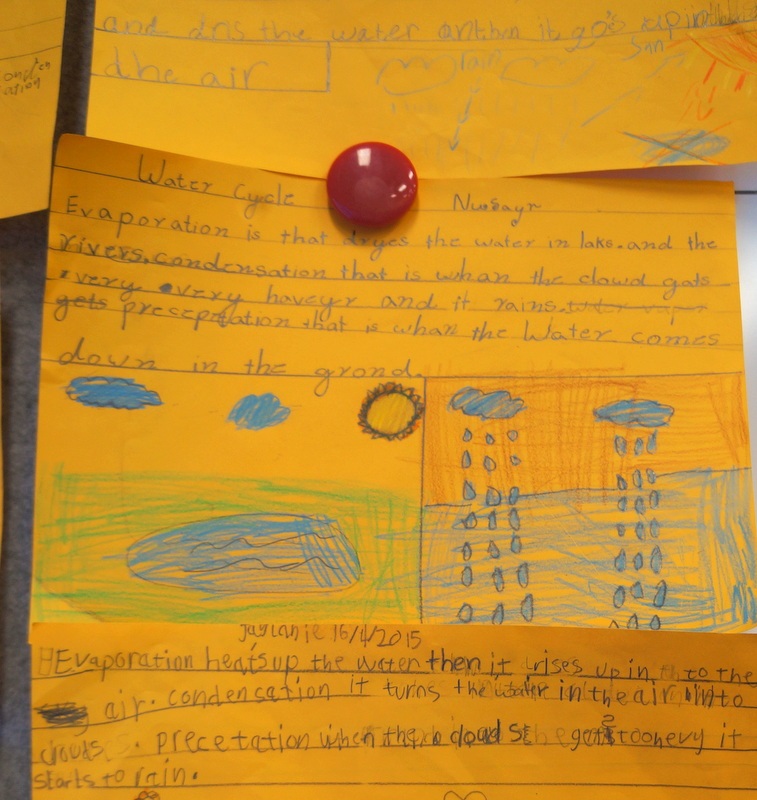 and dris the water anthen it go's up in
the air
rain
Sun
Water Cycle
Nusayr
Evaporation is that dryes the water in laks.and the
rivers,condensation that is whan the clowd gats
very every haveyer and it rains.water vaper
gets preseptation that is whan the Water comes
down in the grond.
Jaylanie 16/4/2015
Evaporation heats up the water then it rises up in to the
air. condensation it turns the water in the air into
clouds. precetation when the cloud gets to hevy it
starts to rain.